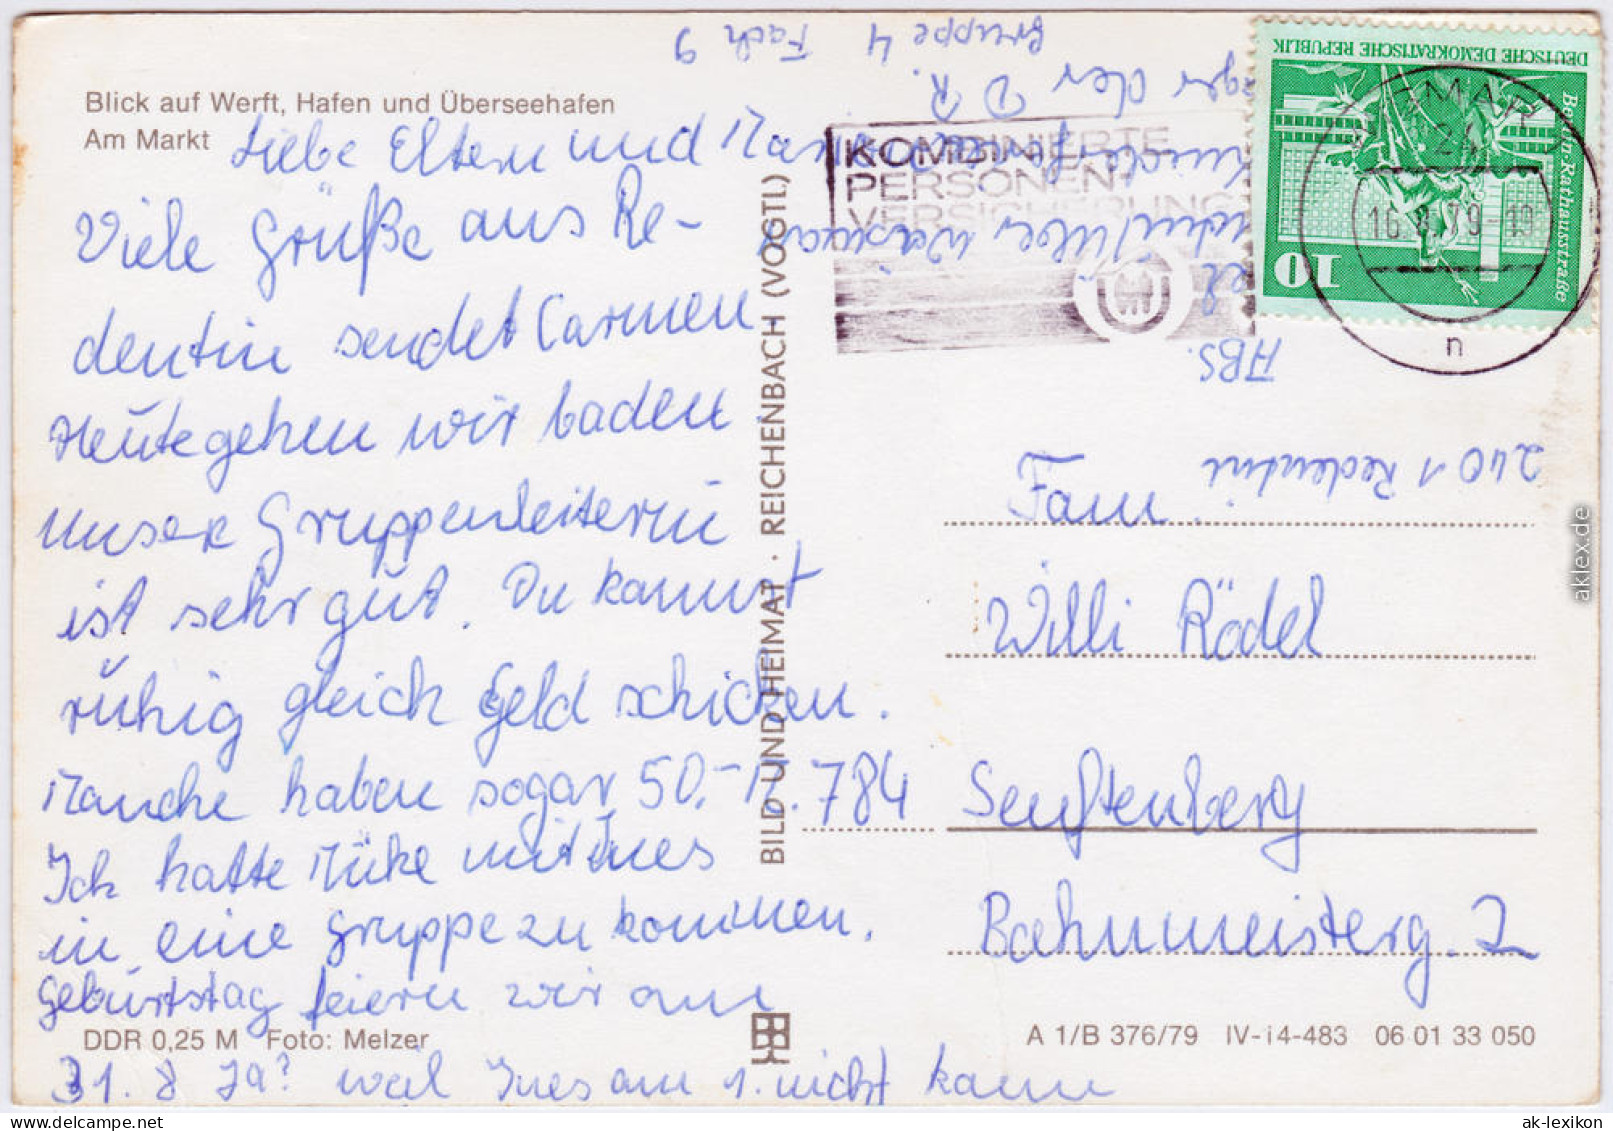 Blick auf Werft, Hafen und Überseehafen
Am Markt
Liebe Eltern und
Viele Grüße aus Re-
dentin sendet Carmen
Heute gehen wir baden.
Unser Gruppenleiterin
ist sehr gut. Du kannst
ruhig gleich Geld schicken.
Manche haben sogar 50.- M.
Ich hatte Müke mit Ines
in eine Gruppe zu kommen.
Geburtstag feiern wir am
31.8 Ja? weil Ines am 1. nicht kann
DDR 0,25 M Foto: Melzer
BILD UND HEIMAT · REICHENBACH (VOGTL)
KOMBINIERTE
PERSONEN-
VERSICHERUNG
DEUTSCHE DEMOKRATISCHE REPUBLIK
Berlin · Rathausstraße
10
WISMAR
24
16.8.79-19
n
ABS.
über Wismar
der DR.
Gruppe 4 Fach 9
2401 Redentin
Fam.
Willi Rödel
784 Senftenberg
Bahnmeisterg. 2
A 1/B 376/79 IV-i4-483 06 01 33 050
aklex.de
ak-lexikon